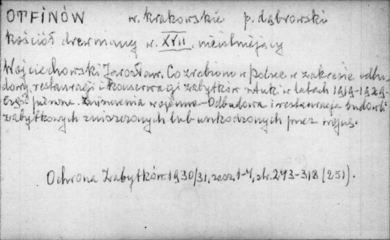 OTFINÓW w. krakowskie p. dąbrowski
Kościół drewniany w. XVII. nieistniejący
Wojciechowski Jarosław. Co zrobiono w Polsce w zakresie odbu-
dowy, restauracji i konserwacji zabytków sztuki w latach 1919-1929.
Część pierwsza. Zniszczenia wojenne - Odbudowa i restauracja budowli
zabytkowych zniszczonych lub uszkodzonych przez wojnę.
Ochrona Zabytków 1930/31, zesz. 1-4, str. 243-318 (251).